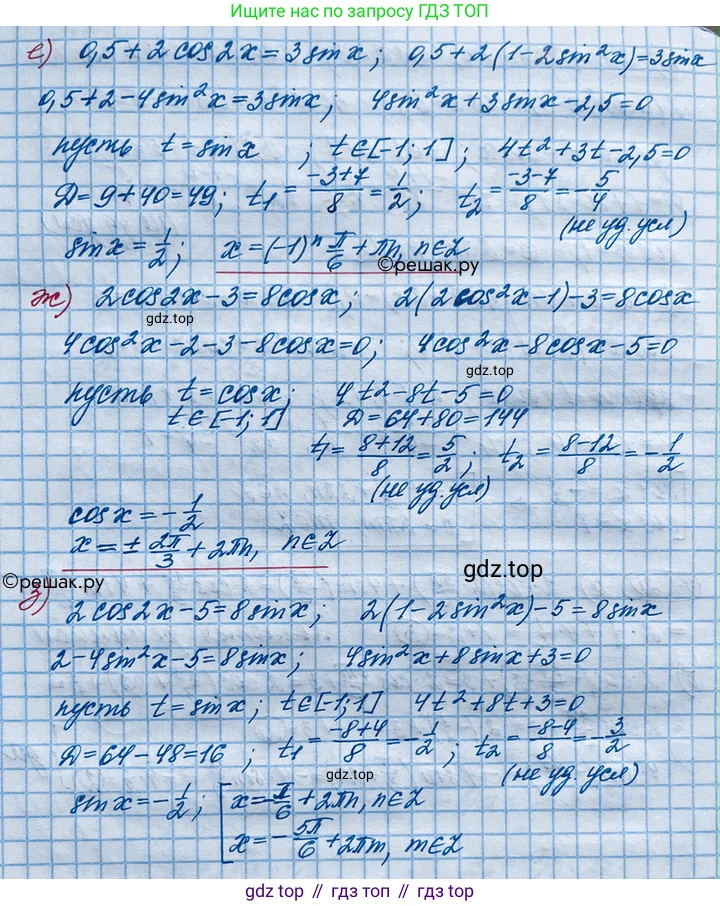 Ищите нас по запросу ГДЗ ТОП
е) 0,5+2cos2x=3sinx; 0,5+2(1-2sin²x)=3sinx
0,5+2-4sin²x=3sinx; 4sin²x+3sinx-2,5=0
пусть t=sinx ; t∈[-1;1]; 4t²+3t-2,5=0
D=9+40=49; t₁=(-3+7)/8=1/2; t₂=(-3-7)/8=-5/4
(не уд. усл)
sinx=1/2; x=(-1)ⁿ π/6+πn, n∈Z
©решак.ру
ж) 2cos2x-3=8cosx; 2(2cos²x-1)-3=8cosx
gdz.top
4cos²x-2-3-8cosx=0; 4cos²x-8cosx-5=0
gdz.top
пусть t=cosx; 4t2-8t-5=0
t∈[-1;1] D=64+80=144
t₁=(8+12)/8=5/2; t₂=(8-12)/8=-1/2
(не уд. усл)
cosx=-1/2
x=±2π/3+2πn, n∈Z
©решак.ру gdz.top
з) 2cos2x-5=8sinx; 2(1-2sin²x)-5=8sinx
2-4sin²x-5=8sinx; 4sin²x+8sinx+3=0
пусть t=sinx; t∈[-1;1] 4t²+8t+3=0
D=64-48=16 ; t₁=(-8+4)/8=-1/2; t₂=(-8-4)/8=-3/2
gdz.top (не уд. усл)
sinx=-1/2; [x=-π/6+2πn, n∈Z
x=-5π/6+2πm, m∈Z
gdz top // гдз топ // gdz.top